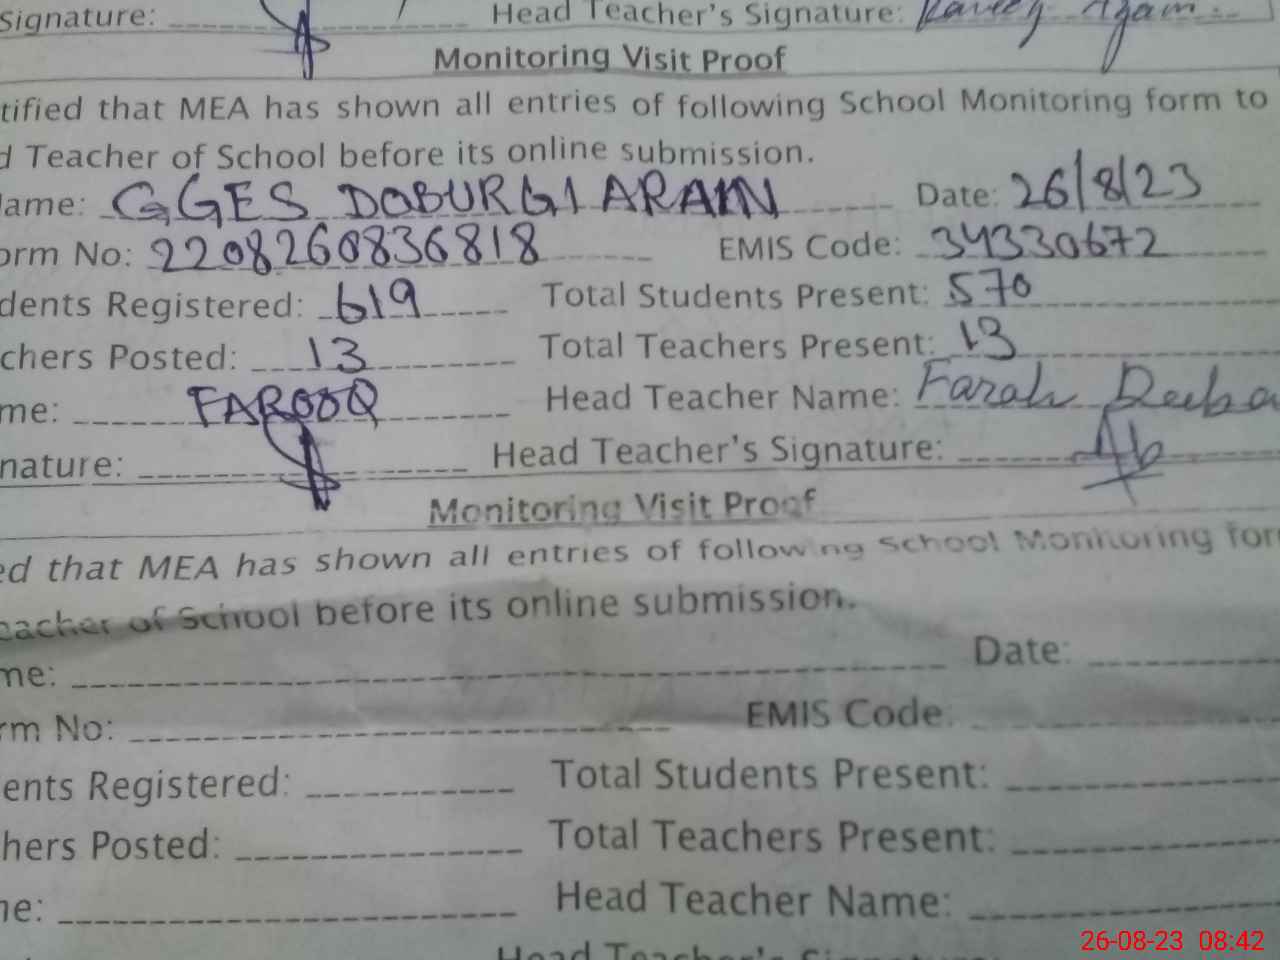 Signature: Head Teacher's Signature:
Monitoring Visit Proof
tified that MEA has shown all entries of following School Monitoring form to
d Teacher of School before its online submission.
ame: GGES DOBURGI ARAIN Date: 26/8/23
orm No: 2208260836818 EMIS Code: 34330672
dents Registered: 619 Total Students Present: 570
chers Posted: 13 Total Teachers Present: 13
me: FAROOQ Head Teacher Name: Farah Deeba
nature: Head Teacher's Signature:
Monitoring Visit Proof
ed that MEA has shown all entries of following School Monitoring for
eacher of School before its online submission.
me: Date:
rm No: EMIS Code:
ents Registered: Total Students Present:
hers Posted: Total Teachers Present:
ne: Head Teacher Name:
Head Teacher's Signature:
26-08-23 08:42